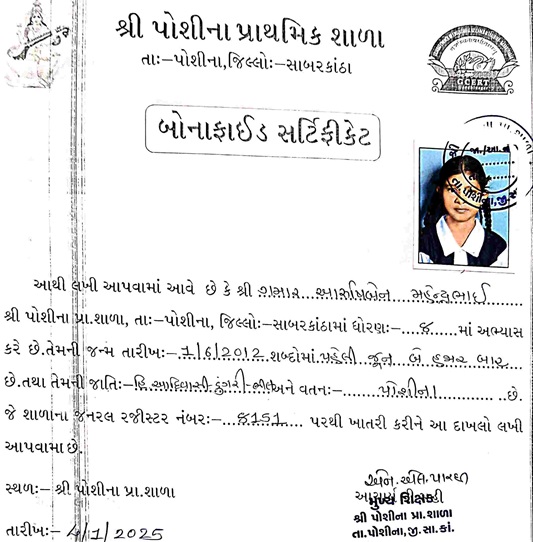 શ્રી પોશીના પ્રાથમિક શાળા
તાઃ-પોશીના,જિલ્લોઃ-સાબરકાંઠા
GCERT
બોનાફાઈડ સર્ટિફીકેટ
જા./આ.નં
તા.પોશીના,જી.સા.
આથી લખી આપવામાં આવે છે કે શ્રી ગમાર આરુષિબેન મહેન્દ્રભાઈ
શ્રી પોશીના પ્રા.શાળા, તાઃ-પોશીના, જિલ્લોઃ-સાબરકાંઠામાં ધોરણઃ-....૪.....માં અભ્યાસ
કરે છે.તેમની જન્મ તારીખઃ-1/6/2012.શબ્દોમાં.પહેલી જૂન બે હજાર બાર
છે.તથા તેમની જાતિઃ-હિ.આદિવાસી ડુંગરી-ભીલ અને વતનઃ- પોશીના ....છે.
જે શાળાના જનરલ રજીસ્ટર નંબરઃ-....8151.... પરથી ખાતરી કરીને આ દાખલો લખી
આપવમા છે.
સ્થળઃ- શ્રી પોશીના પ્રા.શાળા
મુખ્ય શિક્ષક
શ્રી પોશીના પ્રા.શાળા
તા.પોશીના,જી.સા.કાં.
તારીખઃ- 4/1/2025